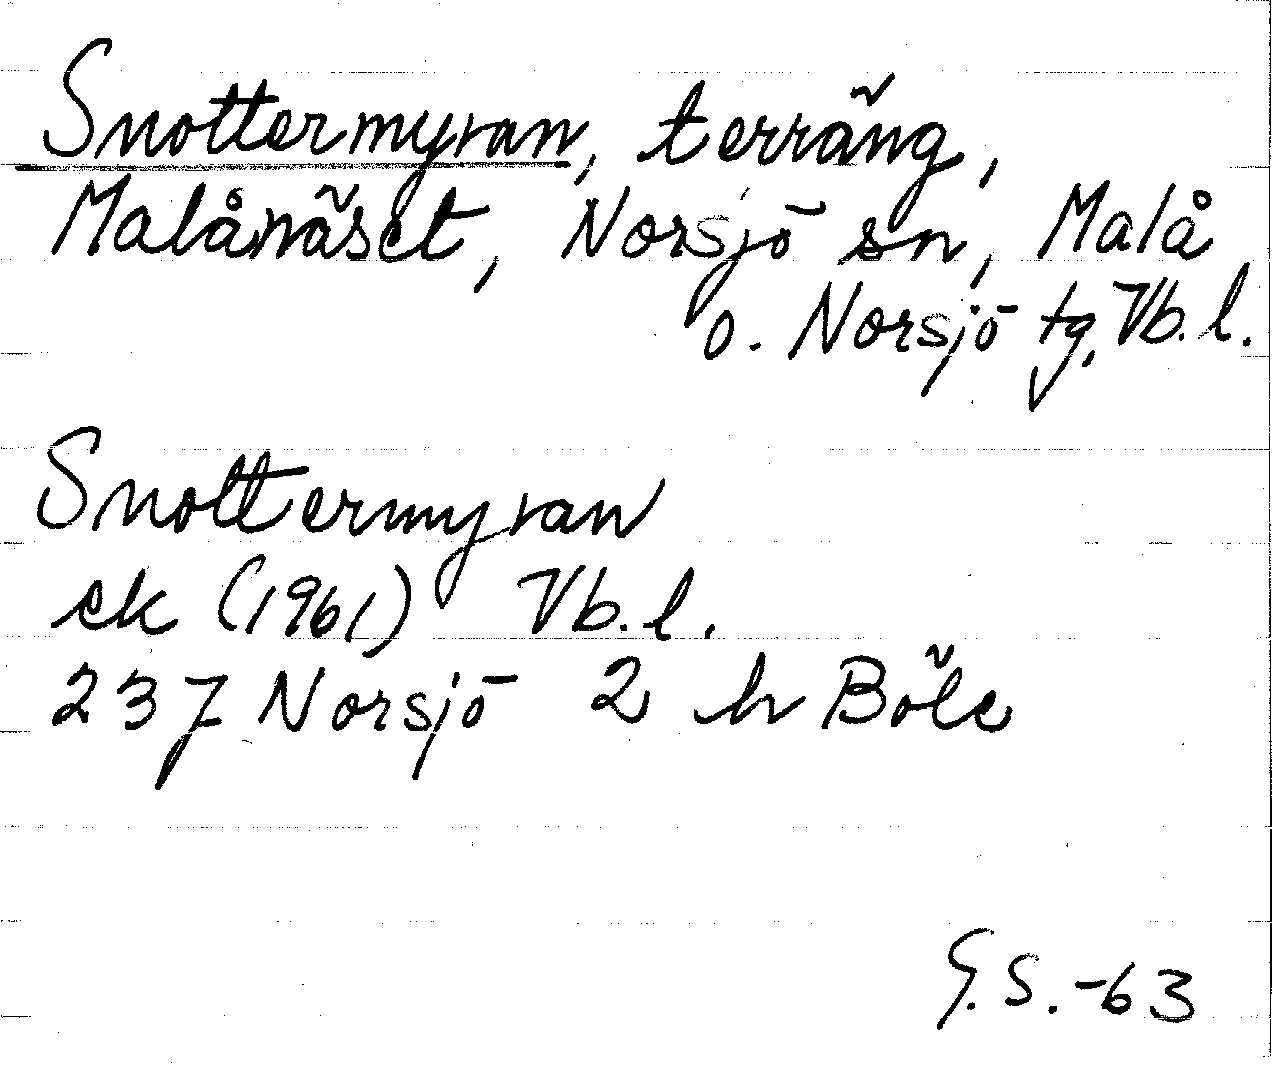 Snottermyran, terräng,
Malånäset, Norsjö sn, Malå
o. Norsjö tg, Vb. l.
Snottermyran
ek (1961) Vb. l.
237 Norsjö 2 h Böle
G. S. -63